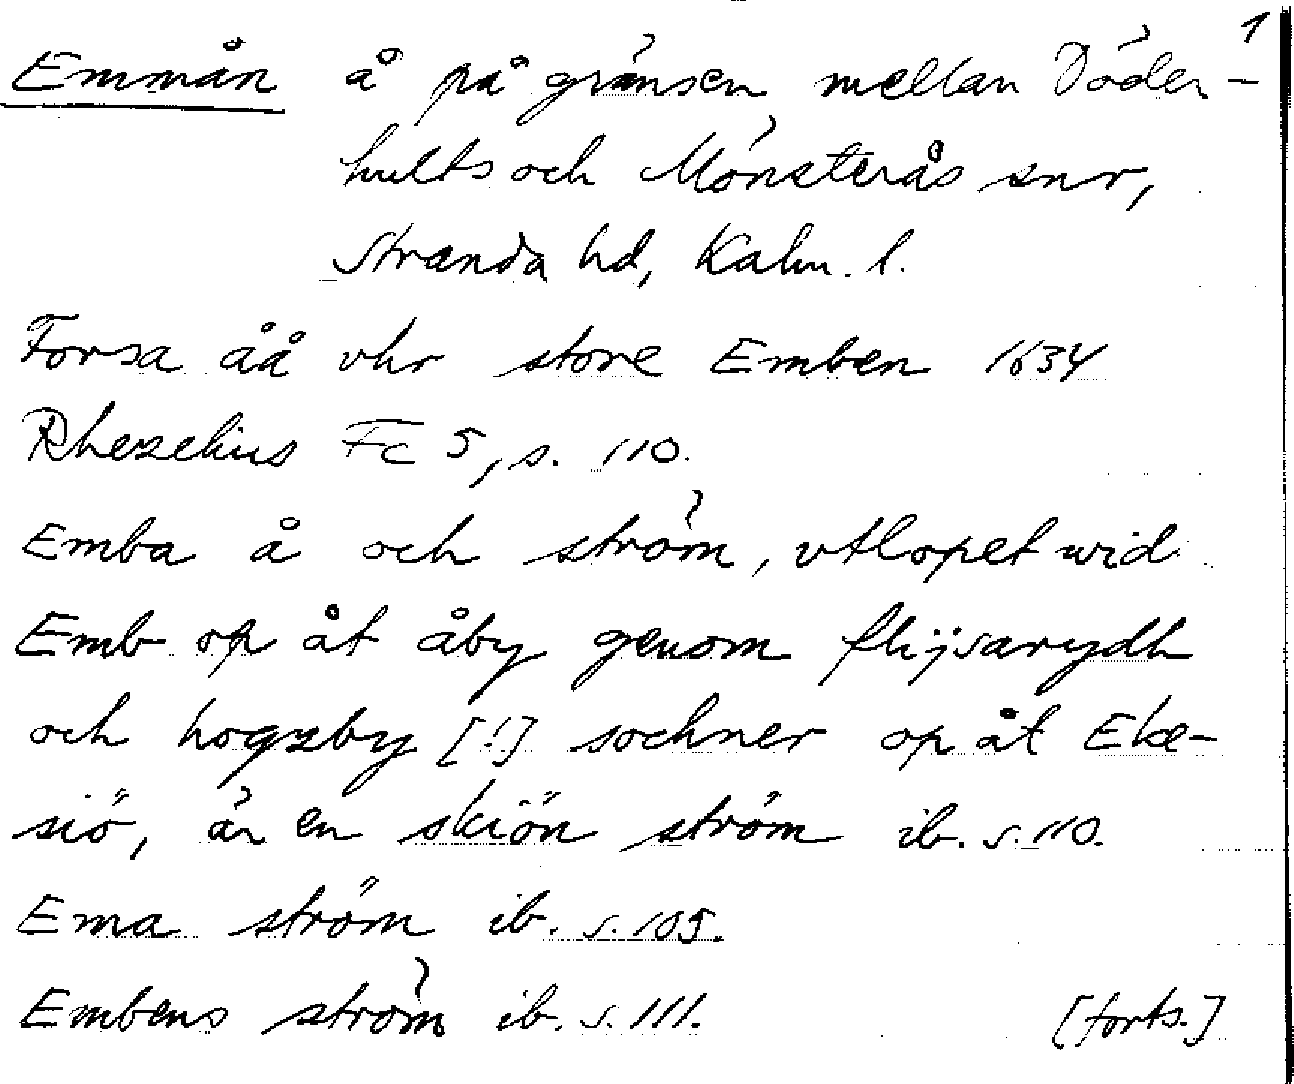 1
Emmån å på gränsen mellan Döder-
hults och Mönsterås snr,
Stranda hd, Kalm. l.
Forsa åå vhr store Emben 1634
Rhezelius Fc 5, s. 110.
Emba å och ström, vtlopet wid
Emb op åt åby genom flijsarydh
och hogzby [!] sochner op åt Eke-
siö, är en skiön ström ib. s. 110.
Ema ström ib. s. 109.
Embens ström ib. s. 111. [forts.]